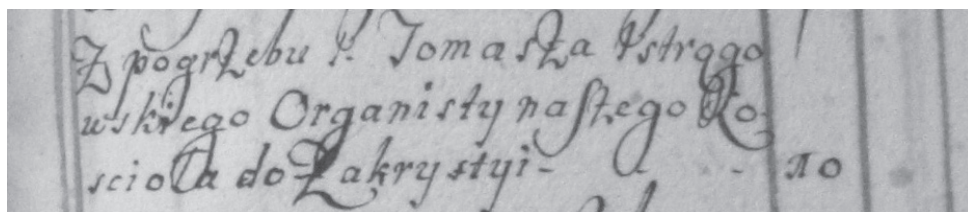 Z pogrzebu ś. Tomasza Pstrągo
wskiego Organisty naszego Ko-
scioła do Zakrystyi - - - 10